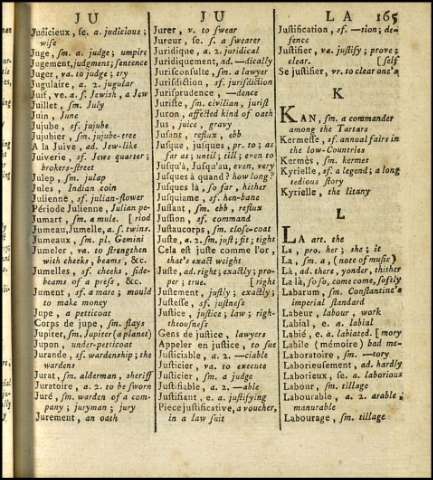 JU
JU
LA 165
Judicieux, se. a. judicious ;
wise
Juge, sm. a judge ; umpire
Jugement, judgment; sentence
Juger, va. to judge ; try
Jugulaire, a. 2. jugular
Juif, ve. a. f Jewish, a Jew
Juillet, sm. July
Juin, June
Jujube, sf. jujube
Jujubier, sm. jujube-tree
A la Juive, ad. Jew-like
Juiverie, sf. Jews quarter ;
brokers-street
Julep, sm. julap
Jules, Indian coin
Julienne, sf. julian-flower
Période Julienne, Julian pe-
Jumart, sm. a mule. [riod
Jumeau, Jumelle, a. s. twins.
Jumeaux, sm. pl. Gemini
Jumeler, va. to strengthen
with cheeks, beams, &c.
Jumelles, sf. cheeks, side-
beams of a press, &c.
Jument, sf. a mare ; mould
to make money
Jupe, a petticoat
Corps de jupe, sm. stays
Jupiter, sm. Jupiter (a planet)
Jupon, under-petticoat
Jurande, sf. wardenship; the
wardens
Jurat, sm. alderman, sheriff
Juratoire, a. 2. to be sworn
Juré, sm. warden of a com-
pany ; juryman ; jury
Jurement, an oath
Jurer, v. to swear
Jureur, se. s. a swearer
Juridique, a. 2. juridical
Juridiquement, ad. —dically
Jurisconsulte, sm. a lawyer
Jurisdiction, sf. jurisdiction
Jurisprudence, —dence
Juriste, sm. civilian, jurist
Juron, affected kind of oath
Jus, juice, gravy
Jusant, reflux, ebb
Jusque, jusques, pr. to ; as
far as ; until ; till ; even to
Jusqu'à, Jusqu'au, even, very
Jusques à quand ? how long ?
Jusques là, so far, hither
Jusquiame, sf. hen-bane
Jussant, sm. ebb, reflux
Jussion, sf. command
Justaucorps, sm. close-coat
Juste, a. 2. sm. just ; fit ; tight
Cela est juste comme l'or,
that's exact weight
Juste, ad. right ; exactly ; pro-
per ; true. [right
Justement, justly ; exactly ;
Justesse, sf. justness
Justice, justice ; law ; righ-
theousness
Gens de justice, lawyers
Appeler en justice, to sue
Justiciable, a. 2. —ciable
Justicier, va. to execute
Justicier, sm. a judge
Justifiable, a. 2. —able
Justifiant, e. a. justifying
Piece justificative, a voucher,
in a law suit
Justification, sf. —tion; de-
fence
Justifier, va. justify ; prove ;
clear. [self
Se justifier, vr. to clear one's
K
KAN, sm. a commander
among the Tartars
Kermesse, sf. annual fairs in
the low-Countries
Kermès, sm. kermes
Kyrielle, sf. a legend ; a long
tedious story
Kyrielle, the litany
L
LA art. the
La, pro. her ; she ; it
La, sm. a, (note of music)
Là, ad. there, yonder, thither
Là là, so so, come come, softly
Labarum, sm. Constantine's
imperial standard
Labeur, labour, work
Labial, e. a. labial
Labié, e. a. labiated. [mory
Labile (mémoire) bad me-
Laboratoire, sm. —tory
Laborieusement, ad. hardly
Laborieux, se. a. laborious
Labour, sm. tillage
Labourable, a. 2. arable ;
manurable
Labourage, sm. tillage